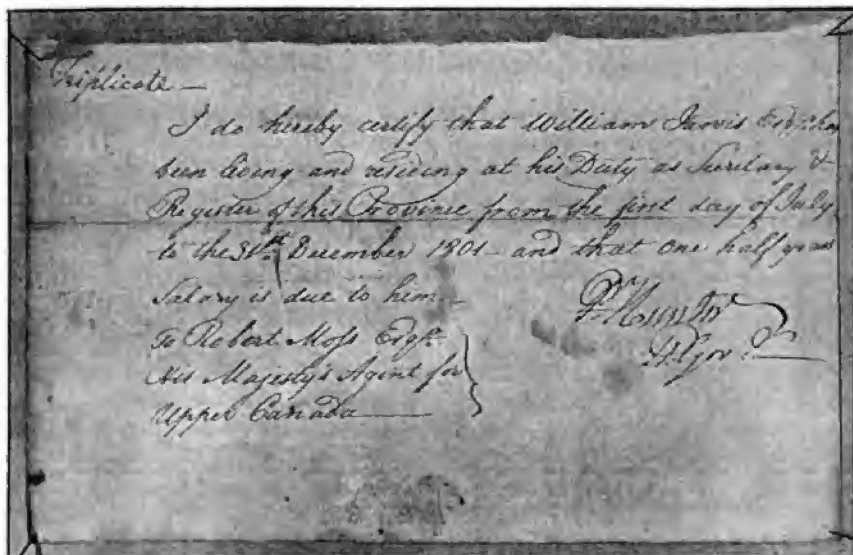 Triplicate —
I do hereby certify that William Jarvis Esqr. has
been living and residing at his Duty as Secretary &
Register of this Province from the first day of July
to the 31st. December 1801 — and that one half years
Salary is due to him —
P. Hunter
Lt. Gov.
To Robert Moss Esqr.
His Majesty's Agent for
Upper Canada